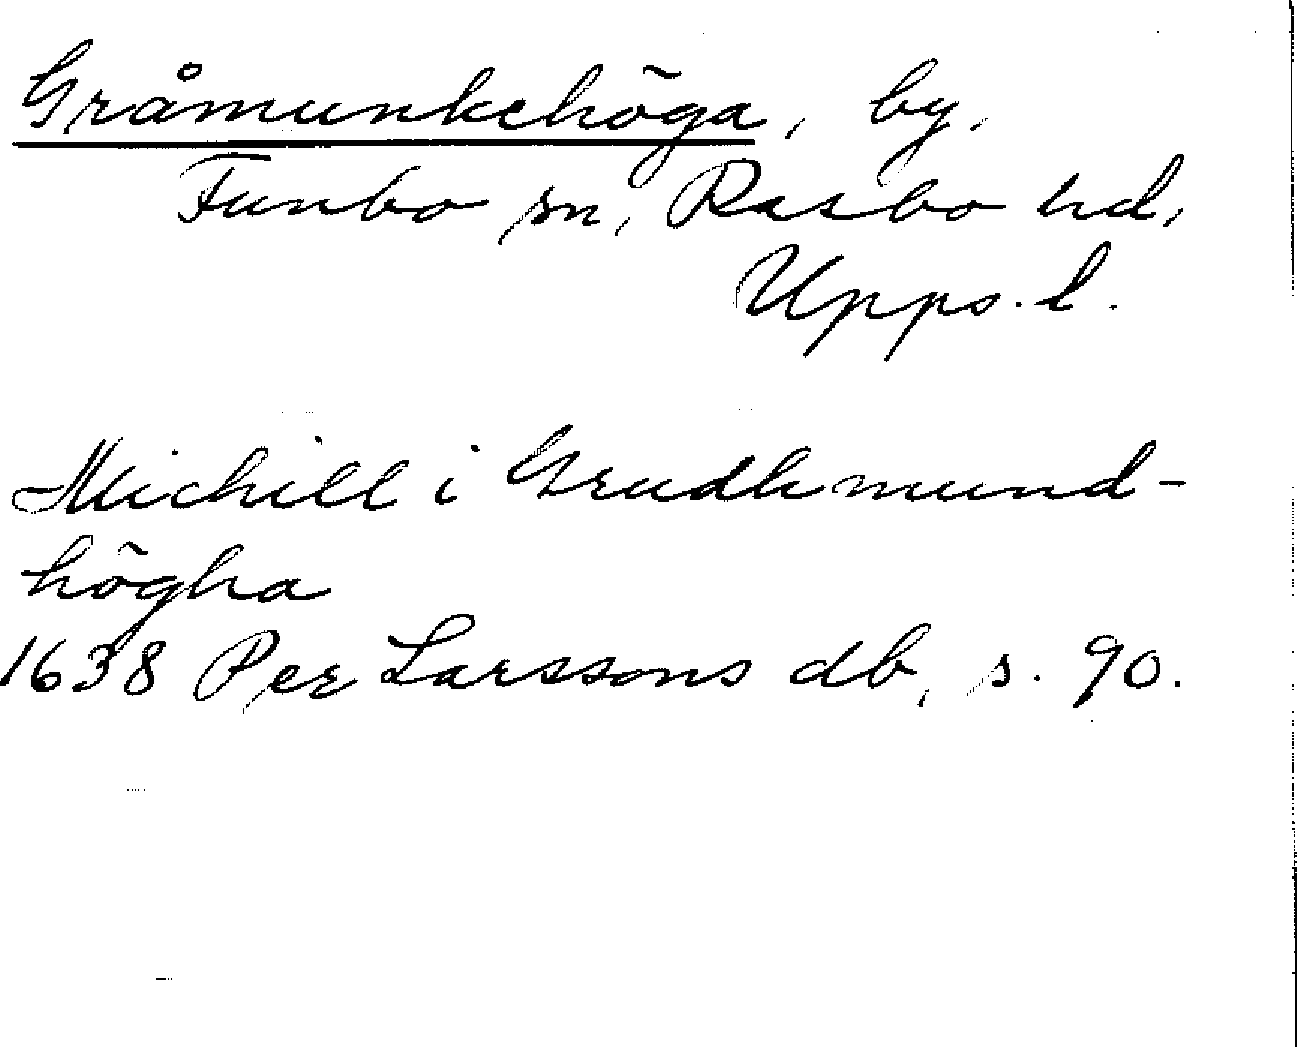 Gråmunkehöga, by,
Funbo sn, Rasbo hd,
Upps. l.
Michill i Grudhmund-
högha
1638 Per Larssons db, s. 90.